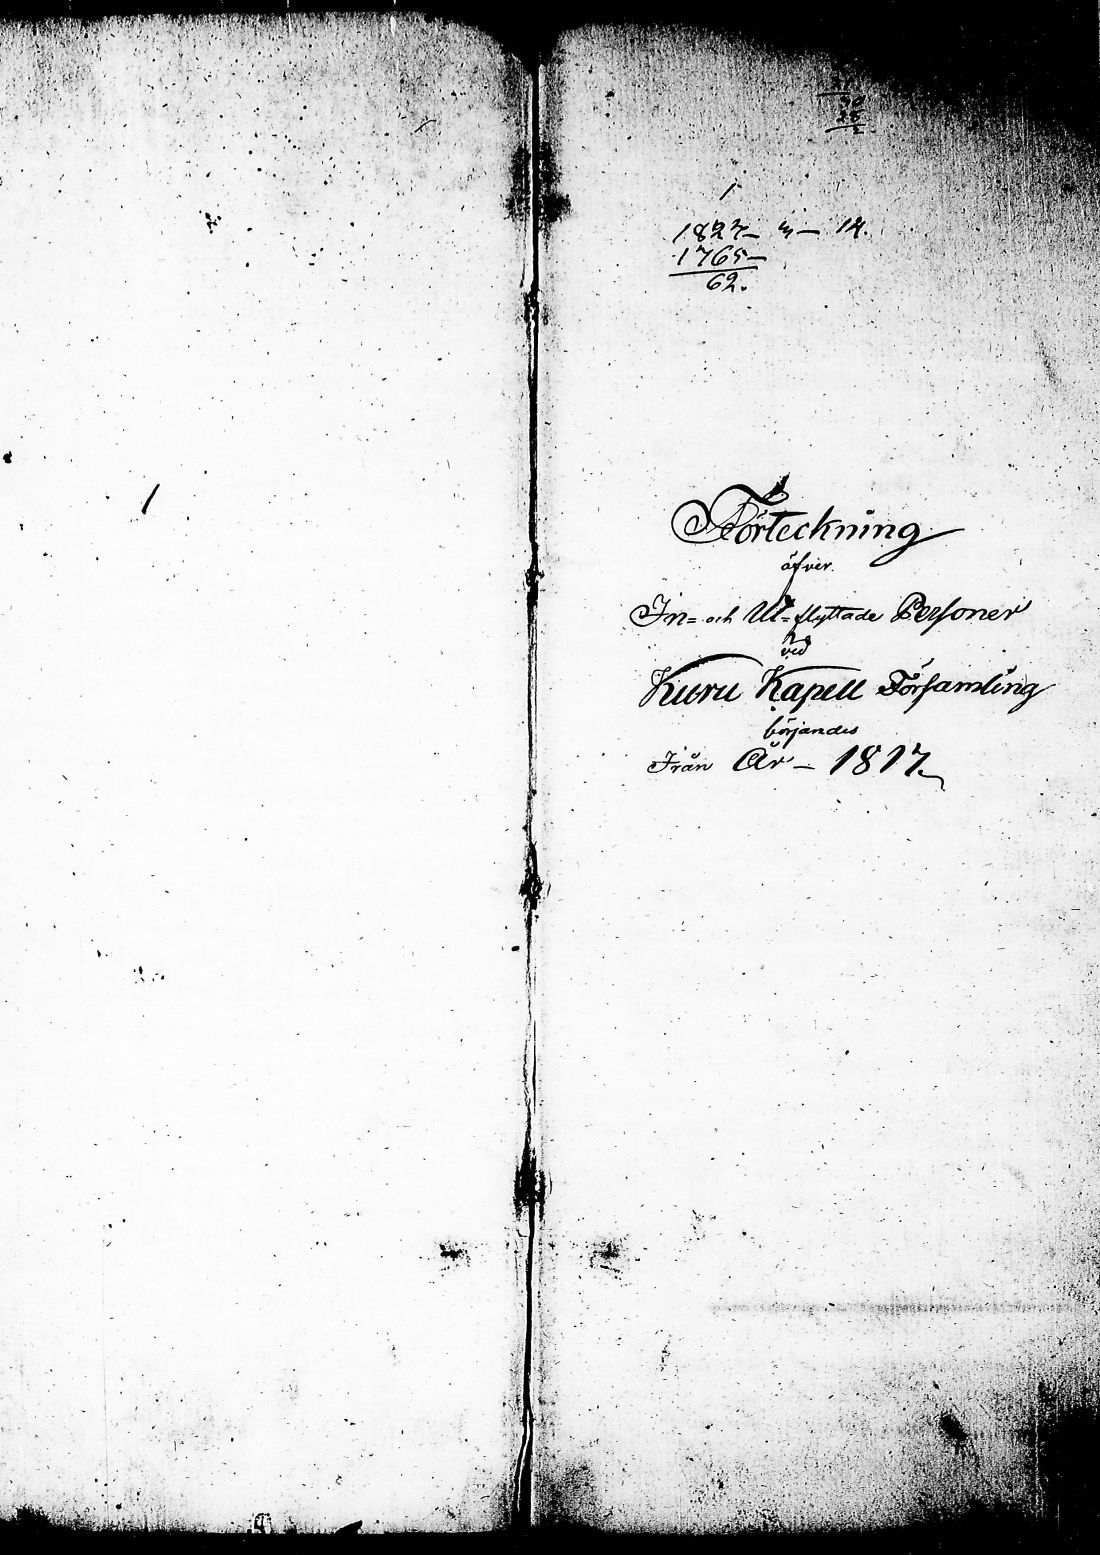 30
25
1827 – 3 – 14.
1765 –
62.
Förteckning
öfver
In= och Ut=flyttade Personer
vid
Kuru Kapell Församling
börjandes
Från År – 1817.